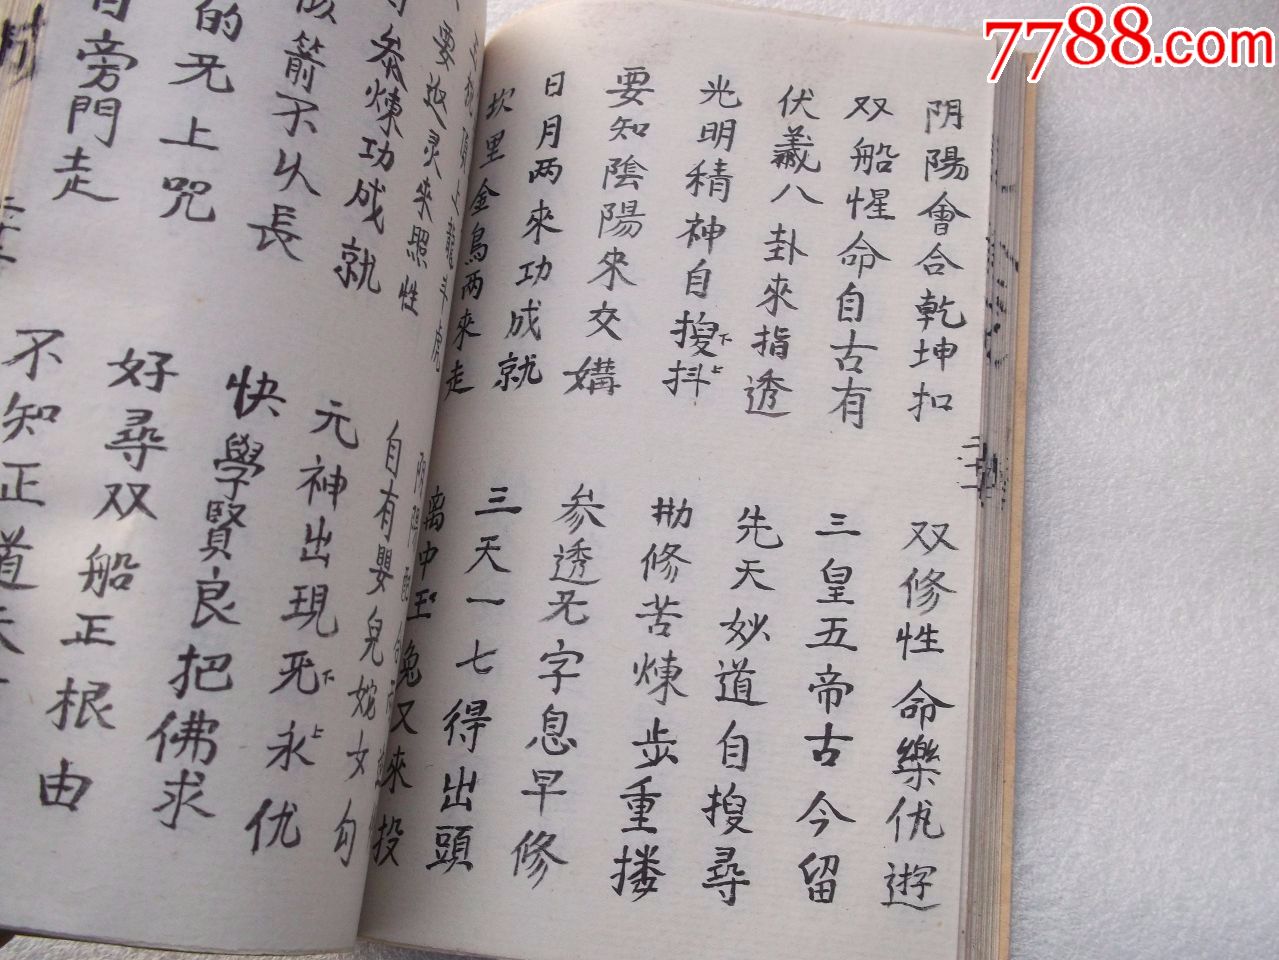 7788.com
阴陽會合乾坤扣
双修性命樂优遊
双船惺命自古有
三皇五帝古今留
伏羲八卦來指透
先天妙道自搜尋
光明精神自搜抖
下上
㔹修苦煉步重搂
要知陰陽來交媾
参透旡字息早修
日月两來功成就
三天一七得出頭
坎里金烏两來走
离中玉兔又來投
要返灵來照性
自有嬰兒姹女勾
参煉功成就
元神出現死永优
下上
箭不以長
快學賢良把佛求
的旡上咒
好尋双船正根由
旁門走
不知正道
二十一